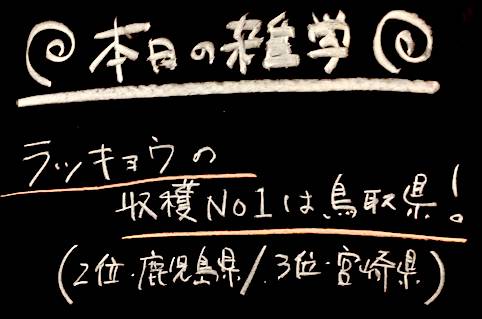 本日の雑学
ラッキョウの
収穫No1は鳥取県!
(2位・鹿児島県/3位・宮崎県)